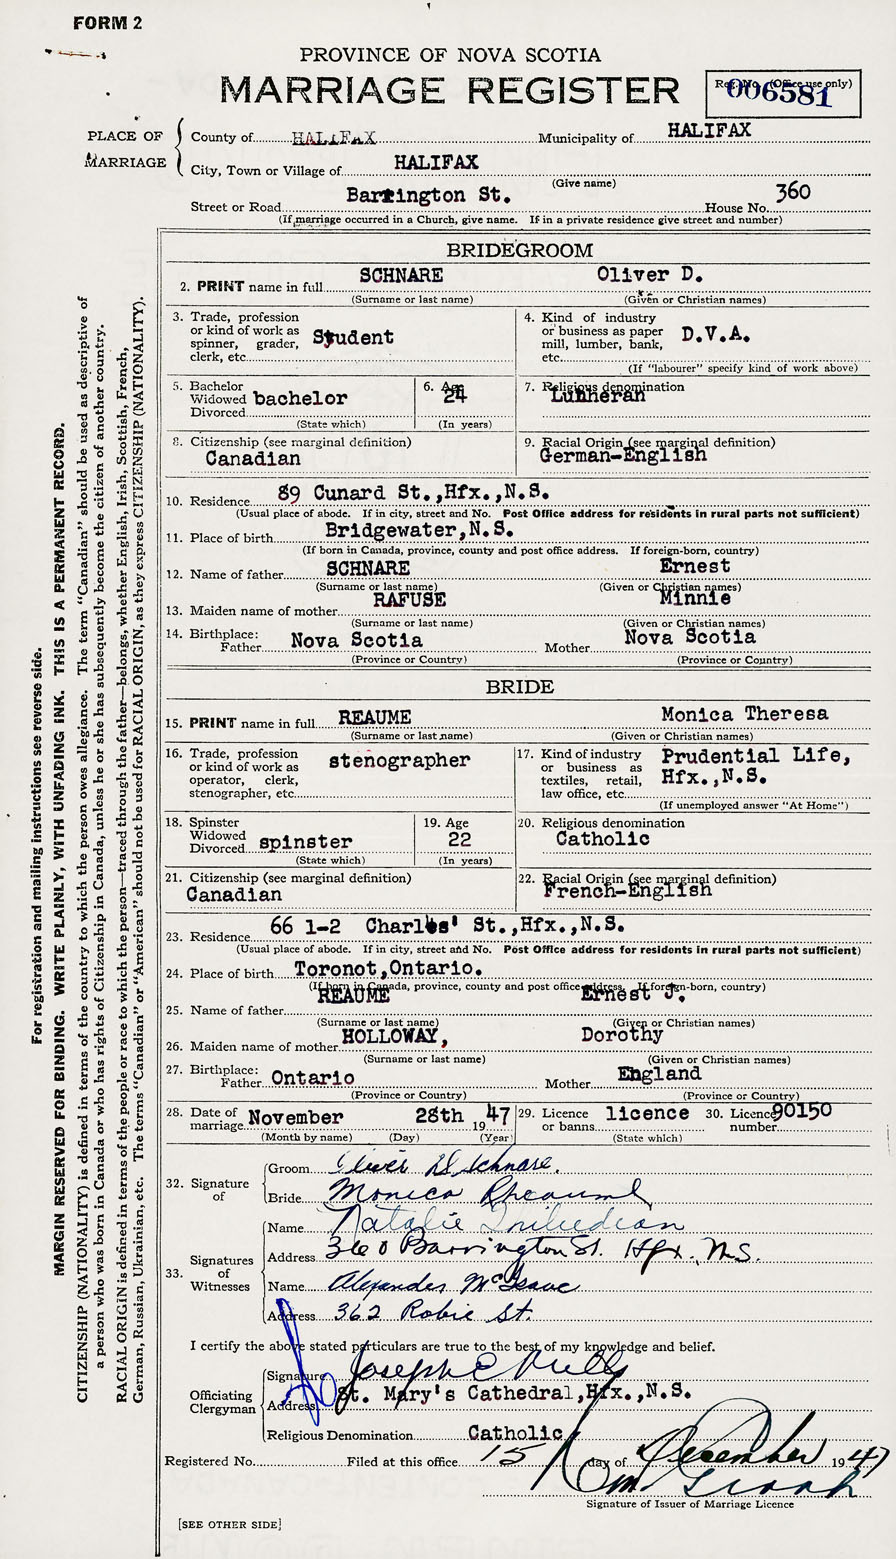 FORM 2
PROVINCE OF NOVA SCOTIA
MARRIAGE REGISTER
Reg. No. (Office use only)
006581
PLACE OF MARRIAGE
County of HALIFAX Municipality of HALIFAX
City, Town or Village of HALIFAX
(Give name)
Street or Road Barrington St. House No. 360
(If marriage occurred in a Church, give name. If in a private residence give street and number)
BRIDEGROOM
2. PRINT name in full SCHNARE Oliver D.
(Surname or last name) (Given or Christian names)
3. Trade, profession or kind of work as spinner, grader, clerk, etc. Student
4. Kind of industry or business as paper mill, lumber, bank, etc. D.V.A.
(If "labourer" specify kind of work above)
5. Bachelor Widowed Divorced bachelor
(State which)
6. Age 24
(In years)
7. Religious denomination Lutheran
8. Citizenship (see marginal definition) Canadian
9. Racial Origin (see marginal definition) German-English
10. Residence 89 Cunard St.,Hfx.,N.S.
(Usual place of abode. If in city, street and No. Post Office address for residents in rural parts not sufficient)
11. Place of birth Bridgewater,N.S.
(If born in Canada, province, county and post office address. If foreign-born, country)
12. Name of father SCHNARE Ernest
(Surname or last name) (Given or Christian names)
13. Maiden name of mother RAFUSE Minnie
(Surname or last name) (Given or Christian names)
14. Birthplace: Father Nova Scotia Mother Nova Scotia
(Province or Country) (Province or Country)
BRIDE
15. PRINT name in full REAUME Monica Theresa
(Surname or last name) (Given or Christian names)
16. Trade, profession or kind of work as operator, clerk, stenographer, etc. stenographer
17. Kind of industry or business as textiles, retail, law office, etc. Prudential Life, Hfx.,N.S.
(If unemployed answer "At Home")
18. Spinster Widowed Divorced spinster
(State which)
19. Age 22
(In years)
20. Religious denomination Catholic
21. Citizenship (see marginal definition) Canadian
22. Racial Origin (see marginal definition) French-English
23. Residence 66 1-2 Charles' St.,Hfx.,N.S.
(Usual place of abode. If in city, street and No. Post Office address for residents in rural parts not sufficient)
24. Place of birth Toronot,Ontario.
(If born in Canada, province, county and post office address. If foreign-born, country)
25. Name of father REAUME Ernest J.
(Surname or last name) (Given or Christian names)
26. Maiden name of mother HOLLOWAY, Dorothy
(Surname or last name) (Given or Christian names)
27. Birthplace: Father Ontario Mother England
(Province or Country) (Province or Country)
28. Date of marriage November 28th 1947
(Month by name) (Day) (Year)
29. Licence or banns licence
(State which)
30. Licence number 90150
32. Signature of
Groom Oliver D Schnare.
Bride Monica Rheaume
33. Signatures of Witnesses
Name Natalie
Address 360 Barrington St. Hfx., N.S.
Name Alexander McIsaac
Address 362 Robie St.
I certify the above stated particulars are true to the best of my knowledge and belief.
Officiating Clergyman
Signature Joseph E Mills
Address St. Mary's Cathedral,Hfx.,N.S.
Religious Denomination Catholic
Registered No. Filed at this office 15 day of December 1947
Signature of Issuer of Marriage Licence
[SEE OTHER SIDE]
For registration and mailing instructions see reverse side.
MARGIN RESERVED FOR BINDING. WRITE PLAINLY, WITH UNFADING INK. THIS IS A PERMANENT RECORD.
CITIZENSHIP (NATIONALITY) is defined in terms of the country to which the person owes allegiance. The term "Canadian" should be used as descriptive of
a person who was born in Canada or who has rights of Citizenship in Canada, unless he or she has subsequently become the citizen of another country.
RACIAL ORIGIN is defined in terms of the people or race to which the person—traced through the father—belongs, whether English, Irish, Scottish, French,
German, Russian, Ukrainian, etc. The terms "Canadian" or "American" should not be used for RACIAL ORIGIN, as they express CITIZENSHIP (NATIONALITY).